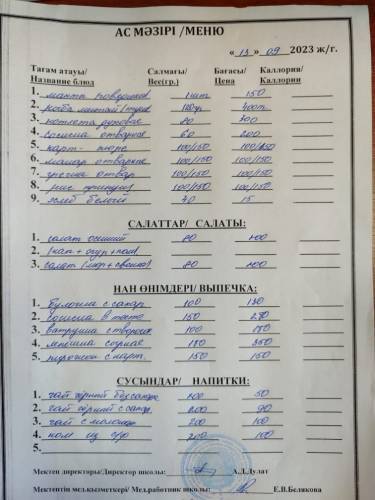 АС МӘЗІРІ /МЕНЮ
« 13 » 09 2023 ж/г.
Тағам атауы/ Салмағы/ Бағасы/ Каллория/
Название блюд Вес(гр.) Цена Каллории/
1. манты говяжьи 1 шт 150
2. 400т
3. котлета 80 300
4. сосиска отварная 60 200
5. карт - пюре 100/150 100/150
6. макар отварные 100/150 100/150
7. гречка отвар 100/150 100/150
8. рис 100/150 100/150
9. хлеб белый 40 15
САЛАТТАР/ САЛАТЫ:
1. салат осенний 80 400
2. (кап + огур + пом)
3. салат (мор + свекла) 80 400
НАН ӨНІМДЕРІ/ ВЫПЕЧКА:
1. булочка с сахар 100 130
2. сосиска в тесте 150 270
3. ватрушка с творогом 100 180
4. 180 350
5. пирожки с карт. 150 150
СУСЫНДАР/ НАПИТКИ:
1. чай чёрный без сахара 200 50
2. чай чёрный с сахар. 200 90
3. чай с молоком 200 100
4. ком из с/ф 200 100
5.
Мектеп директоры/Директор школы: А.Д.Дулат
Мектептің мед.қызметкері/ Мед.работник школы: Е.В.Белякова